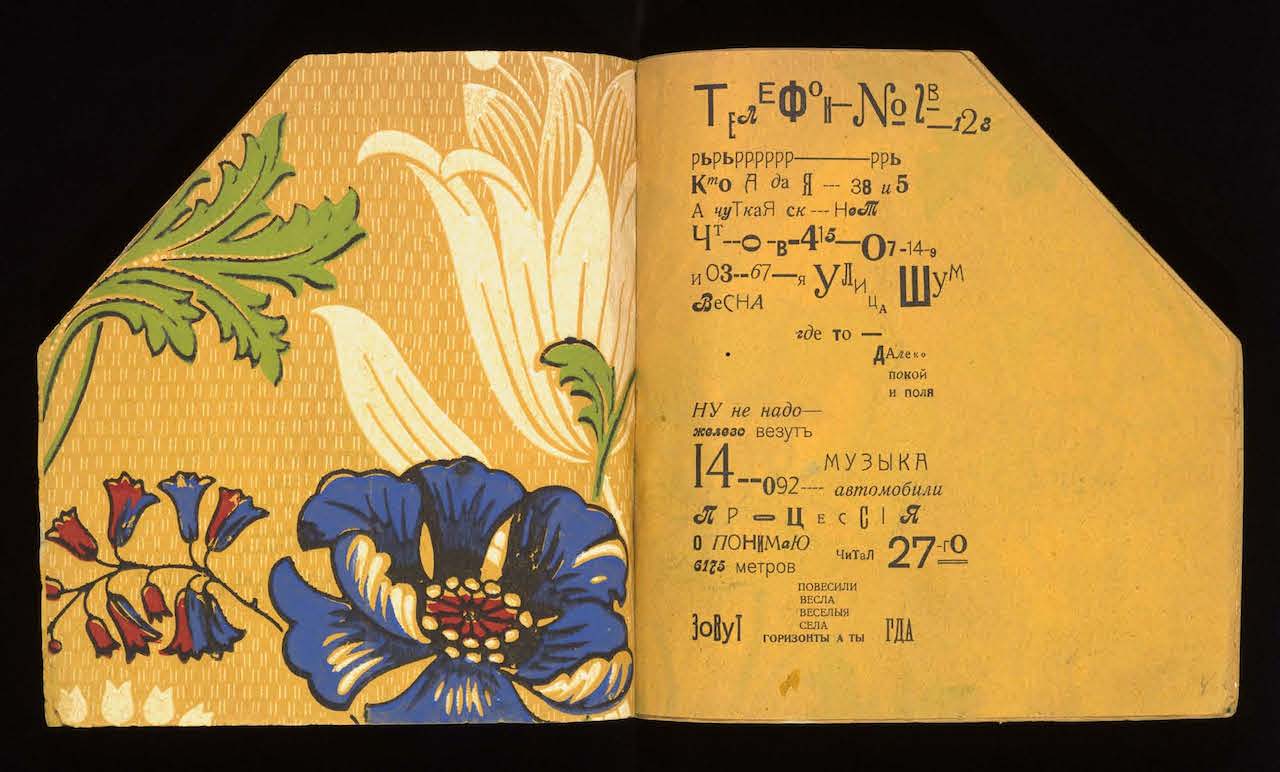 ТЕЛЕФОН—№ 2В—128
рьрьрррррр————ррь
Кто А да Я --- 38 и 5
А чуТкаЯ ск --- НоТ
ЧТ--О-в-415—О7-14-9
и ОЗ--67—я УЛИЦА ШуМ
ВеСНА
где то —
ДАлеко
покой
и поля
НУ не надо—
железо везутъ
14--092---- МУЗЫКА
автомобили
ПР-О-ЦЕССІЯ
О ПОНИМаЮ ЧиТаЛ 27-ГО
6175 метров
ПОВЕСИЛИ
ВЕСЛА
ВЕСЕЛЫЯ
СЕЛА
ЗОВУТ ГОРИЗОНТЫ А ТЫ ГДА